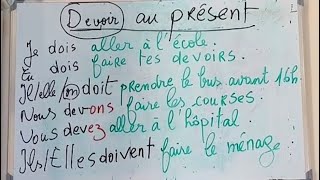 Devoir au présent
Je dois aller à l'école.
Tu dois faire tes devoirs.
Il/elle/on doit prendre le bus avant 16h.
Nous devons faire les courses.
Vous devez aller à l'hôpital.
Ils/Elles doivent faire le ménage.